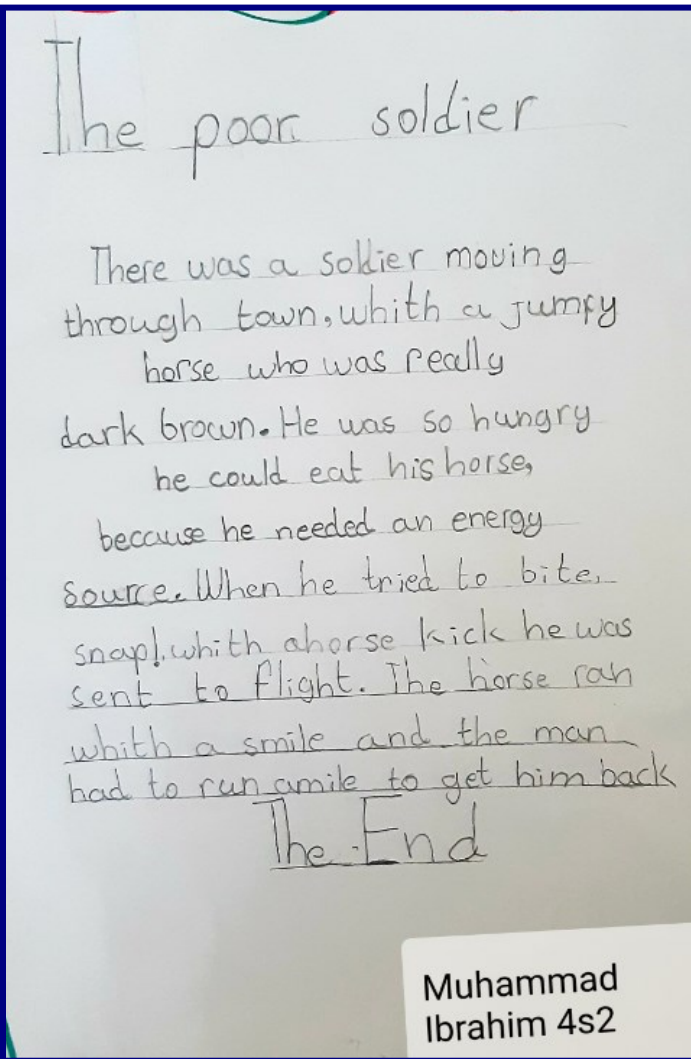 The poor soldier
There was a soldier moving
through town, whith a jumpy
horse who was really
dark brown. He was so hungry
he could eat his horse,
because he needed an energy
source. When he tried to bite,
snap!. whith ahorse kick he was
sent to flight. The horse ran
whith a smile and the man
had to run amile to get him back
The End
Muhammad
Ibrahim 4s2